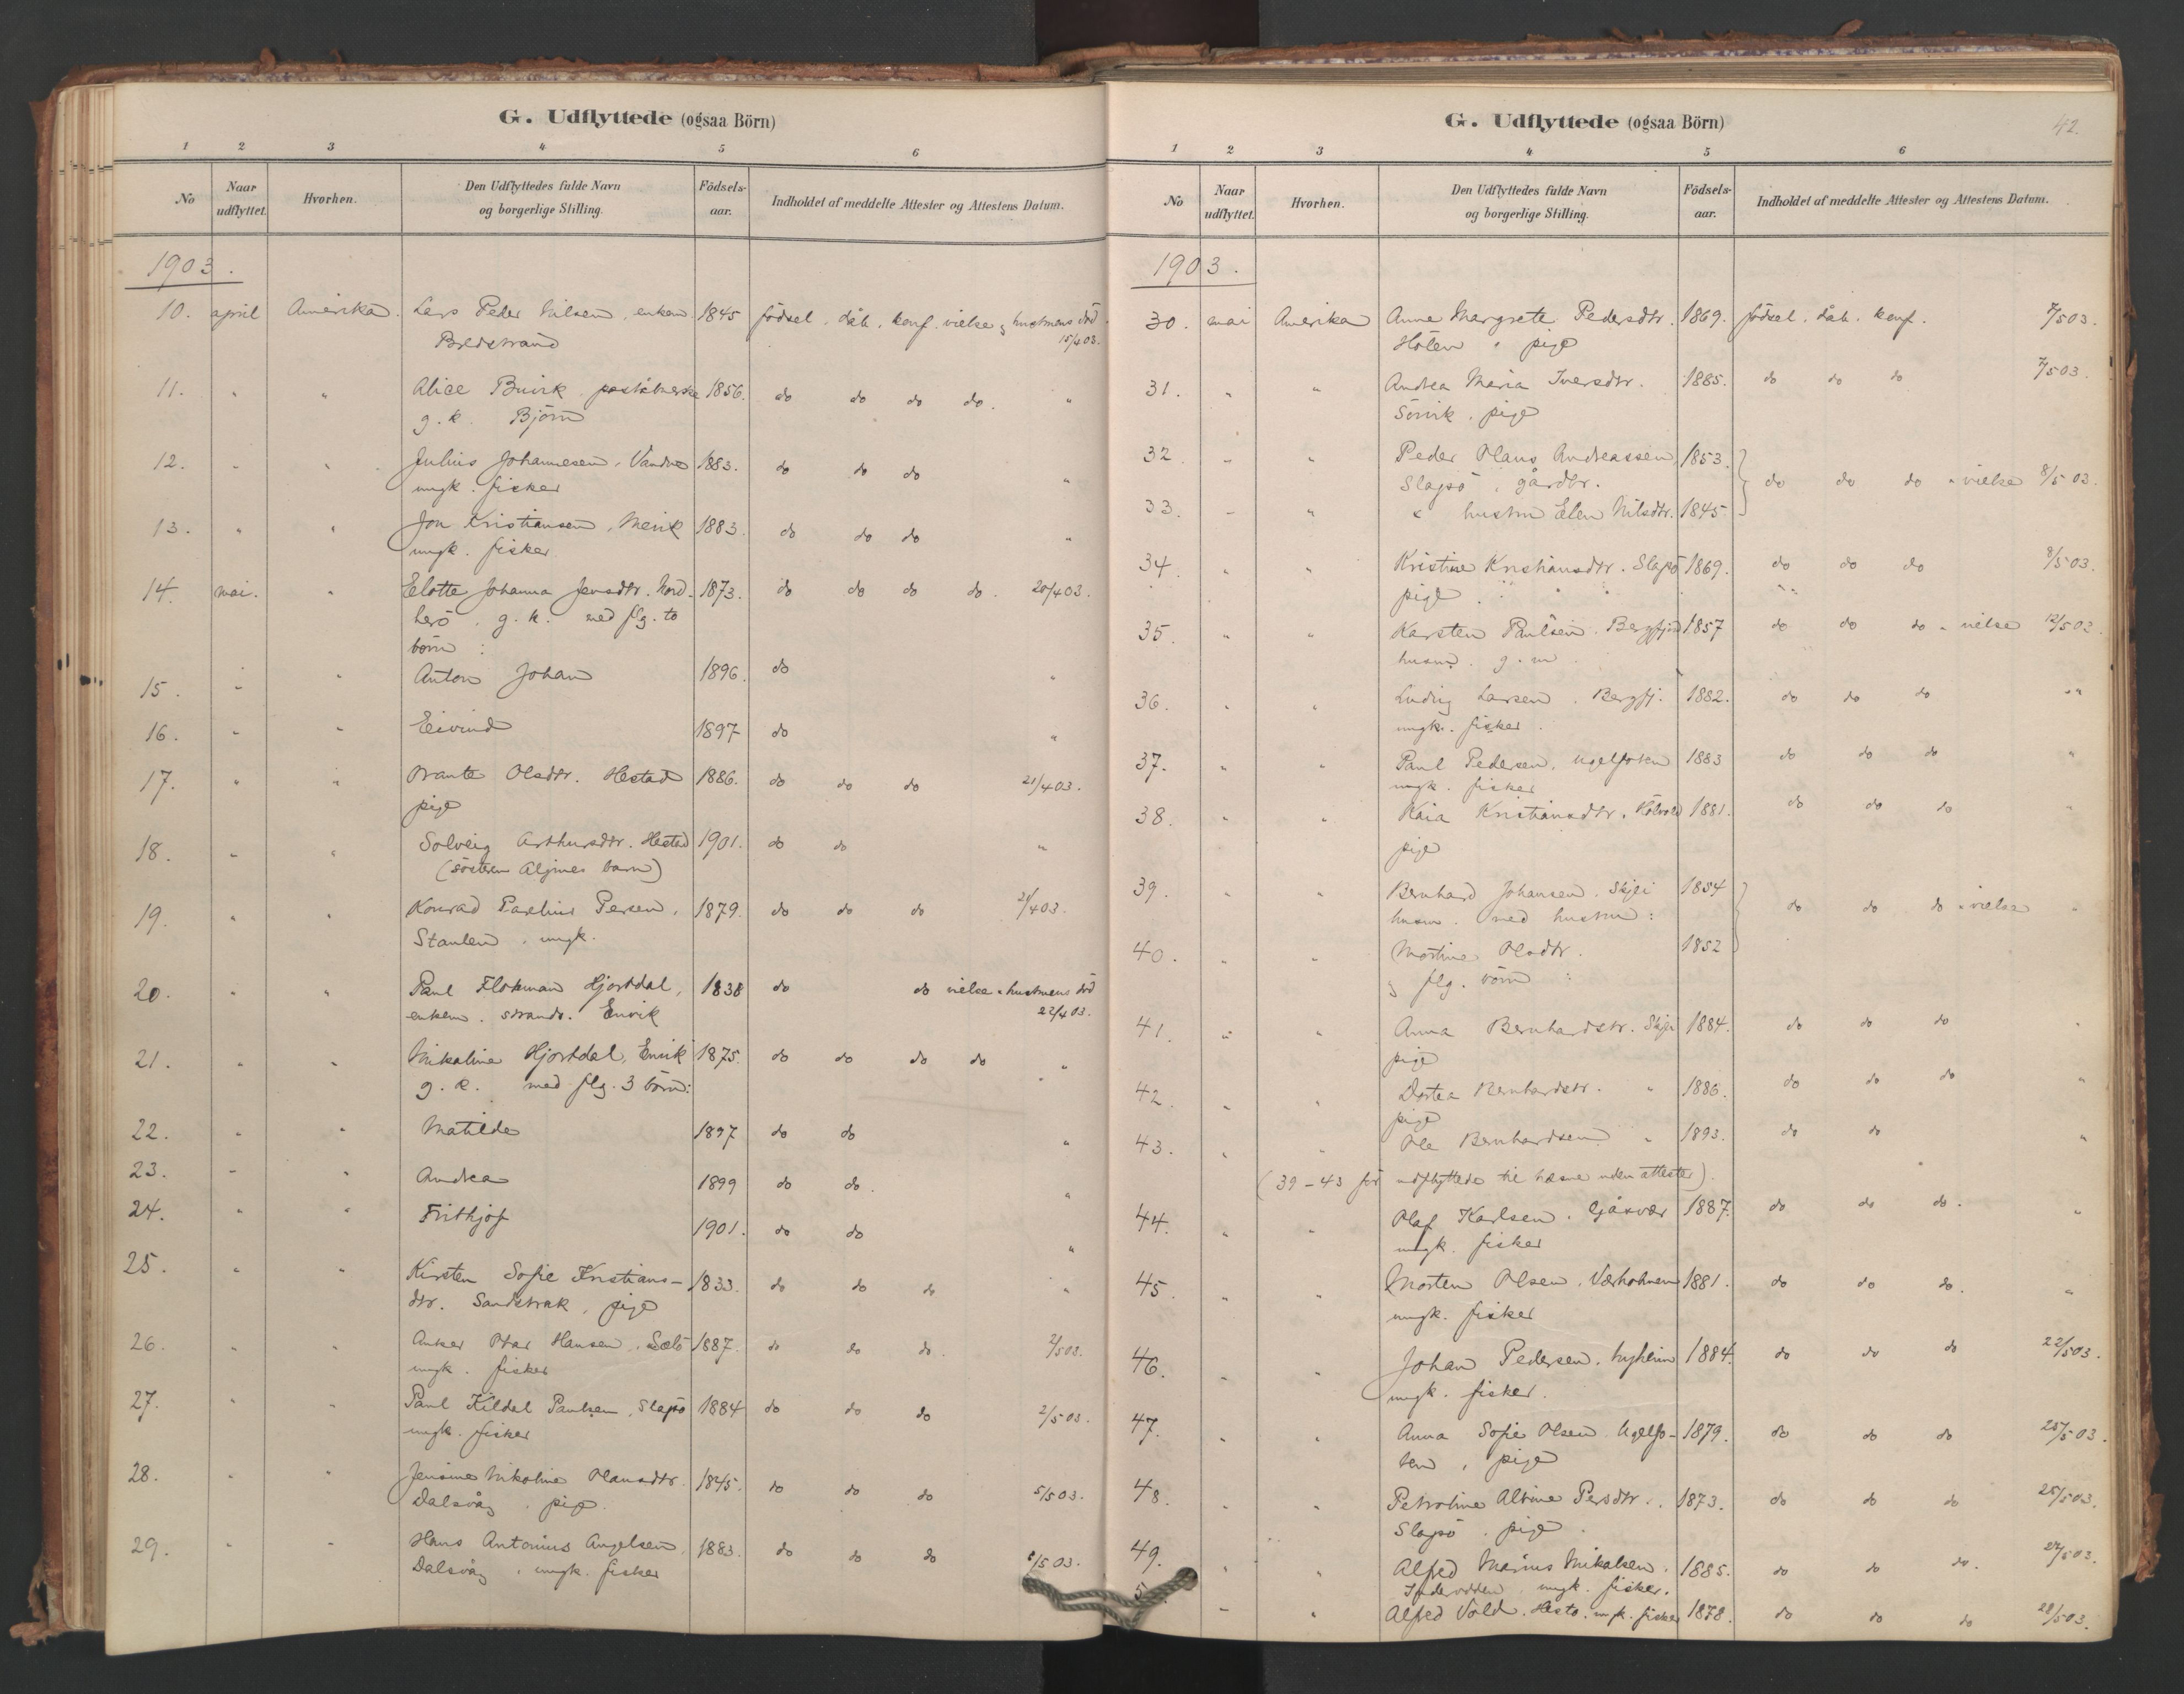 G. Udflyttede (ogsaa Börn)
1 2 3 4 5 6
No Naar udflyttet. Hvorhen. Den Udflyttedes fulde Navn og borgerlige Stilling. Födsels-aar. Indholdet af meddelte Attester og Attestens Datum.
1903.
10. april Amerika. Lars Peder Nilsen, enkem. 1845 födsel. dåb. konf. vielse & hustruens död
Bredstrand 15/4 03.
11. " " Alice Buvik, 1856. do do do do. "
g.k. Björn
12. " " Julius Johannesen, Vandve 1883. do do do "
ungk. fisker
13. " " Jon Kristiansen, Mevik 1883. do do do "
ungk. fisker
14. mai. " Elotte Johanna Jensdtr. Nord- 1873. do do do do. 20/4 03.
herö, g.k. med flg. to
börn :
15. " " Anton Johan 1896. do "
16. " " Eivind 1897 do "
17. " " Olsdtr. Hestad 1886. do do do 21/4 03.
pige
18. " " Solveig Arthursdtr. Hestad 1901. do do "
(söstrens barn)
19. " " Konrad Parelius Persen, 1879. do do do 21/4 03.
Staulen, ungk.
20. " " Paul Flokman Hjortdal, 1838 do do vielse & hustruens död
enkem. strands. Envik 22/4 03.
21. " " Nikoline Hjortdal, Envik 1875. do do do do "
g.k. med flg. 3 börn:
22. " " Matilde 1897 do do "
23. " " Andrea 1899 do do. "
24. " " Frithjof 1901. do do "
25. " " Kirsten Sofie Kristians- 1833. do do do "
dtr. Sandstrak, pige
26. " " Anker Hansen, Selö 1887. do do do. 2/5 03.
ungk. fisker
27. " " Paul Kildal Paulsen, Slapö 1884 do do do 2/5 03.
ungk. fisker
28. " " Jensine Nikoline Olausdtr. 1845. do do do 5/5 03.
Dalsvåg, pige.
29. " " Hans Antonius Angelsen, 1883. do do do 5 03.
Dalsvåg, ungk. fisker
G. Udflyttede (ogsaa Börn) 42.
1 2 3 4 5 6
No Naar udflyttet. Hvorhen. Den Udflyttedes fulde Navn og borgerlige Stilling. Födsels-aar. Indholdet af meddelte Attester og Attestens Datum.
1903.
30. mai Amerika Anne Margrete Pedersdtr. 1869. födsel. dåb. konf. 7/5 03.
Holen, pige
31. " " Andrea Maria Iversdtr. 1885. do do do 7/5 03.
Sörvik. pige
32. " " Peder Olaus Andreassen, 1853. do do do & vielse 8/5 03.
Slapö, gårdbr.
33. " " & hustru Elen Nilsdtr. 1845.
34. " " Kristine Kristiansdtr. Slapö 1869. do do do 8/5 03.
pige.
35. " " Karsten Paulsen. Bergfjord 1857 do do do & vielse 12/5 03.
husm. g.m.
36. " " Ludvig Larsen. Bergfj. 1882. do do do "
ungk. fisker.
37. " " Paul Pedersen. Ugelfoten 1883 do do do "
ungk. fisker
38. " " Kaia Kristiansdtr. 1881. do do do "
pige
39. " " Bernhard Johansen. Skjei 1854 do do do & vielse "
husm. med hustru :
40. " " Olsdtr. 1852
& flg. börn :
41. " " Anna Bernhardstr. Skjei 1884. do do do "
pige
42. " " Dortea Bernhardstr. " 1886. do do do "
pige
43. " " Ole Bernhardsen " 1893. do do "
(39-43 för udflyttede til uden attester).
44. " " Olaf Karlsen. Gåsvær 1887. do do do. "
ungk. fisker
45. " " Morten Olsen. Værholmen 1881. do do do. "
ungk. fisker
46. " " Johan Pedersen. Nyheim 1884. do do do 22/5 03.
ungk. fisker.
47. " " Anna Sofie Olsen. Ugelfo- 1879. do do do 25/5 03.
ten, pige
48. " " Petroline Albine Persdtr. 1873. do do do 25/5 03.
Slapö. pige.
49. " " Alfred Marius Mikalsen. 1885. do do do. 27/5 03.
ungk. fisker.
5 " " Alfred Vold. Hestö. ungk. fisker 1878. do do do 28/5 03.